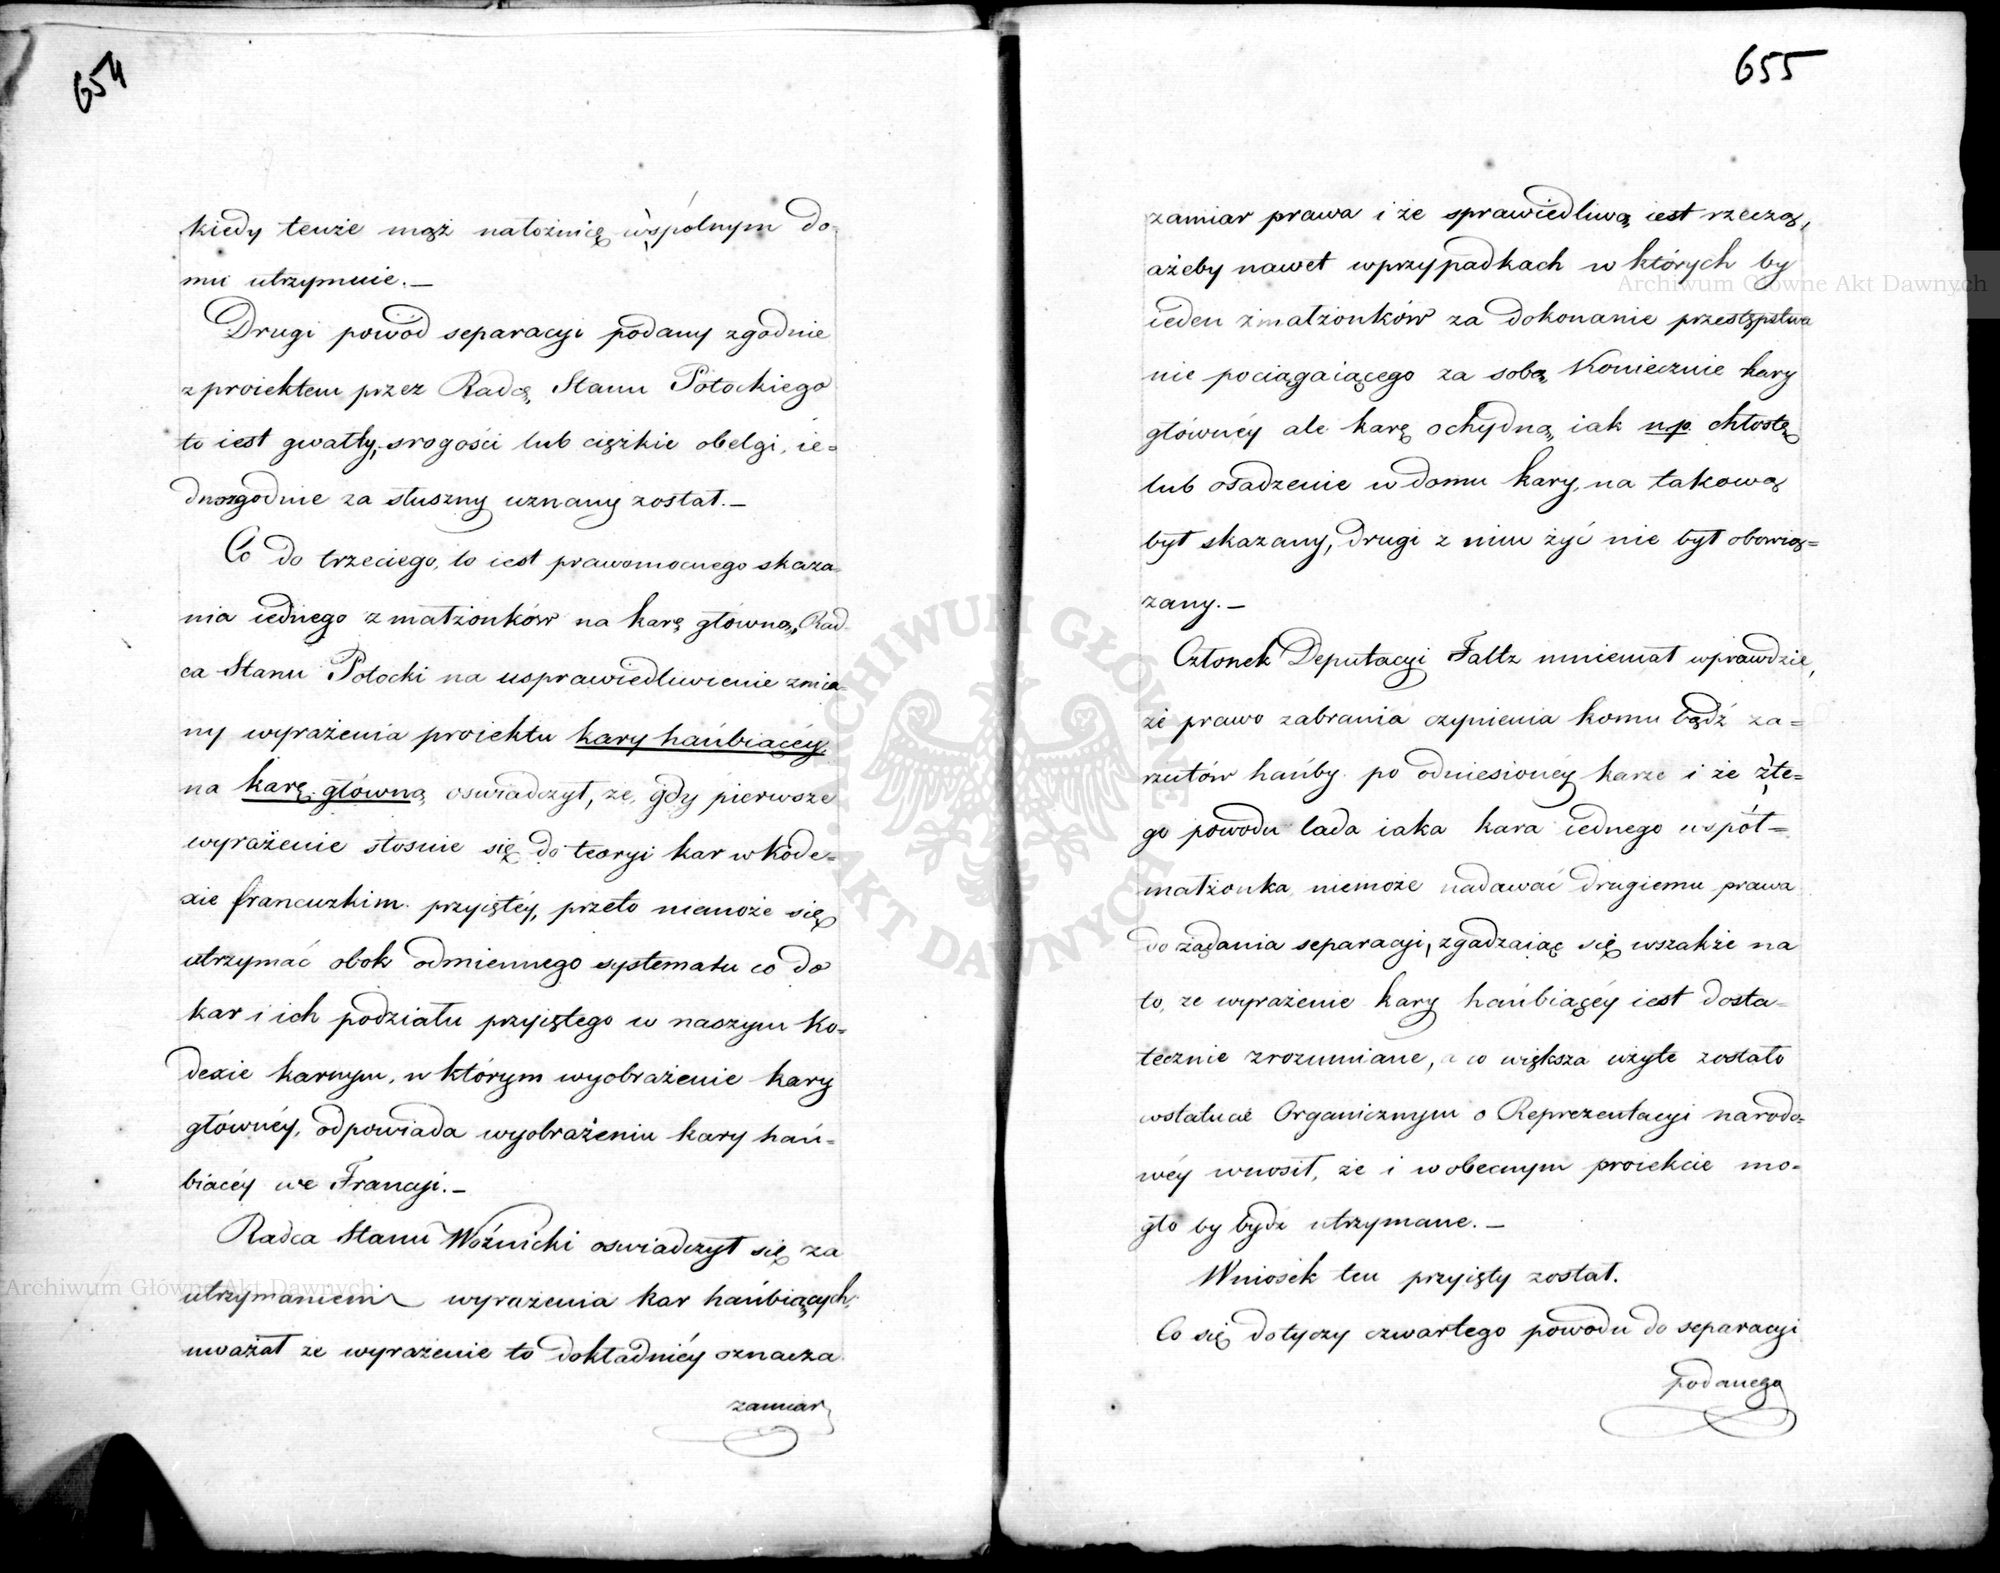 654
kiedy tenże mąż nałożnicę wspólnym do-
mu utrzymuie.—
Drugi powód separacyi podany zgodnie
z proiektem przez Radcę Stanu Potockiego
to iest gwałty, srogości lub ciężkie obelgi, ie=
dnozgodnie za słuszny uznany został.—
Co do trzeciego, to iest prawomocnego skaza-
nia iednego z małżonków na karę główną, Rad-
ca Stanu Potocki na usprawiedliwienie zmia-
ny wyrażenia proiektu kary hańbiącéy,
na karę główną oswiadczył, że, gdy pierwsze
wyrażenie stosuie się do teoryi kar w kode=
xie francuzkim przyiętéy, przeto niemoże się
utrzymać obok odmiennego systematu co do
kar i ich podziału przyiętego w naszym Ko=
dexie karnym, w którym wyobrażenie kary
głównéy, odpowiada wyobrażeniu kary hań=
biącéy we Francyi.—
Radca Stanu Woźnicki oswiadczył się za
utrzymaniem wyrażenia kar hańbiących,
uważał że wyrażenie to dokładniéy oznacza
zamiar
655
zamiar prawa i że sprawiedliwą iest rzeczą,
ażeby nawet wprzypadkach w których by
ieden z małżonków za dokonanie przestępstwa
nie pociągaiącego za sobą koniecznie kary
głównéy ale karę ochydną, iak np. chłostę
lub osadzenie w domu kary, na takową
był skazany, drugi z nim żyć nie był obowią=
zany.—
Członek Deputacyi Faltz mniemał wprawdzie,
że prawo zabrania czynienia komu bądź za=
rzutów hańby po odniesionéy karze i że zte=
go powodu lada iaka kara iednego współ=
małżonka niemoże nadawać drugiemu prawa
do żądania separacyi, zgadzaiąc się wszakże na
to, że wyrażenie kary hańbiącéy iest dosta=
tecznie zrozumiane, a co większa użyte zostało
wstatucie Organicznym o Reprezentacyi narodo-
wéy wnosił, że i wobecnym proiekcie mo=
gło by bydź utrzymane.—
Wniosek ten przyięty został.
Co się dotyczy czwartego powodu do separacyi
podanego
Archiwum Główne Akt Dawnych
Archiwum Główne Akt Dawnych
ARCHIWUM GŁÓWNE
AKT DAWNYCH